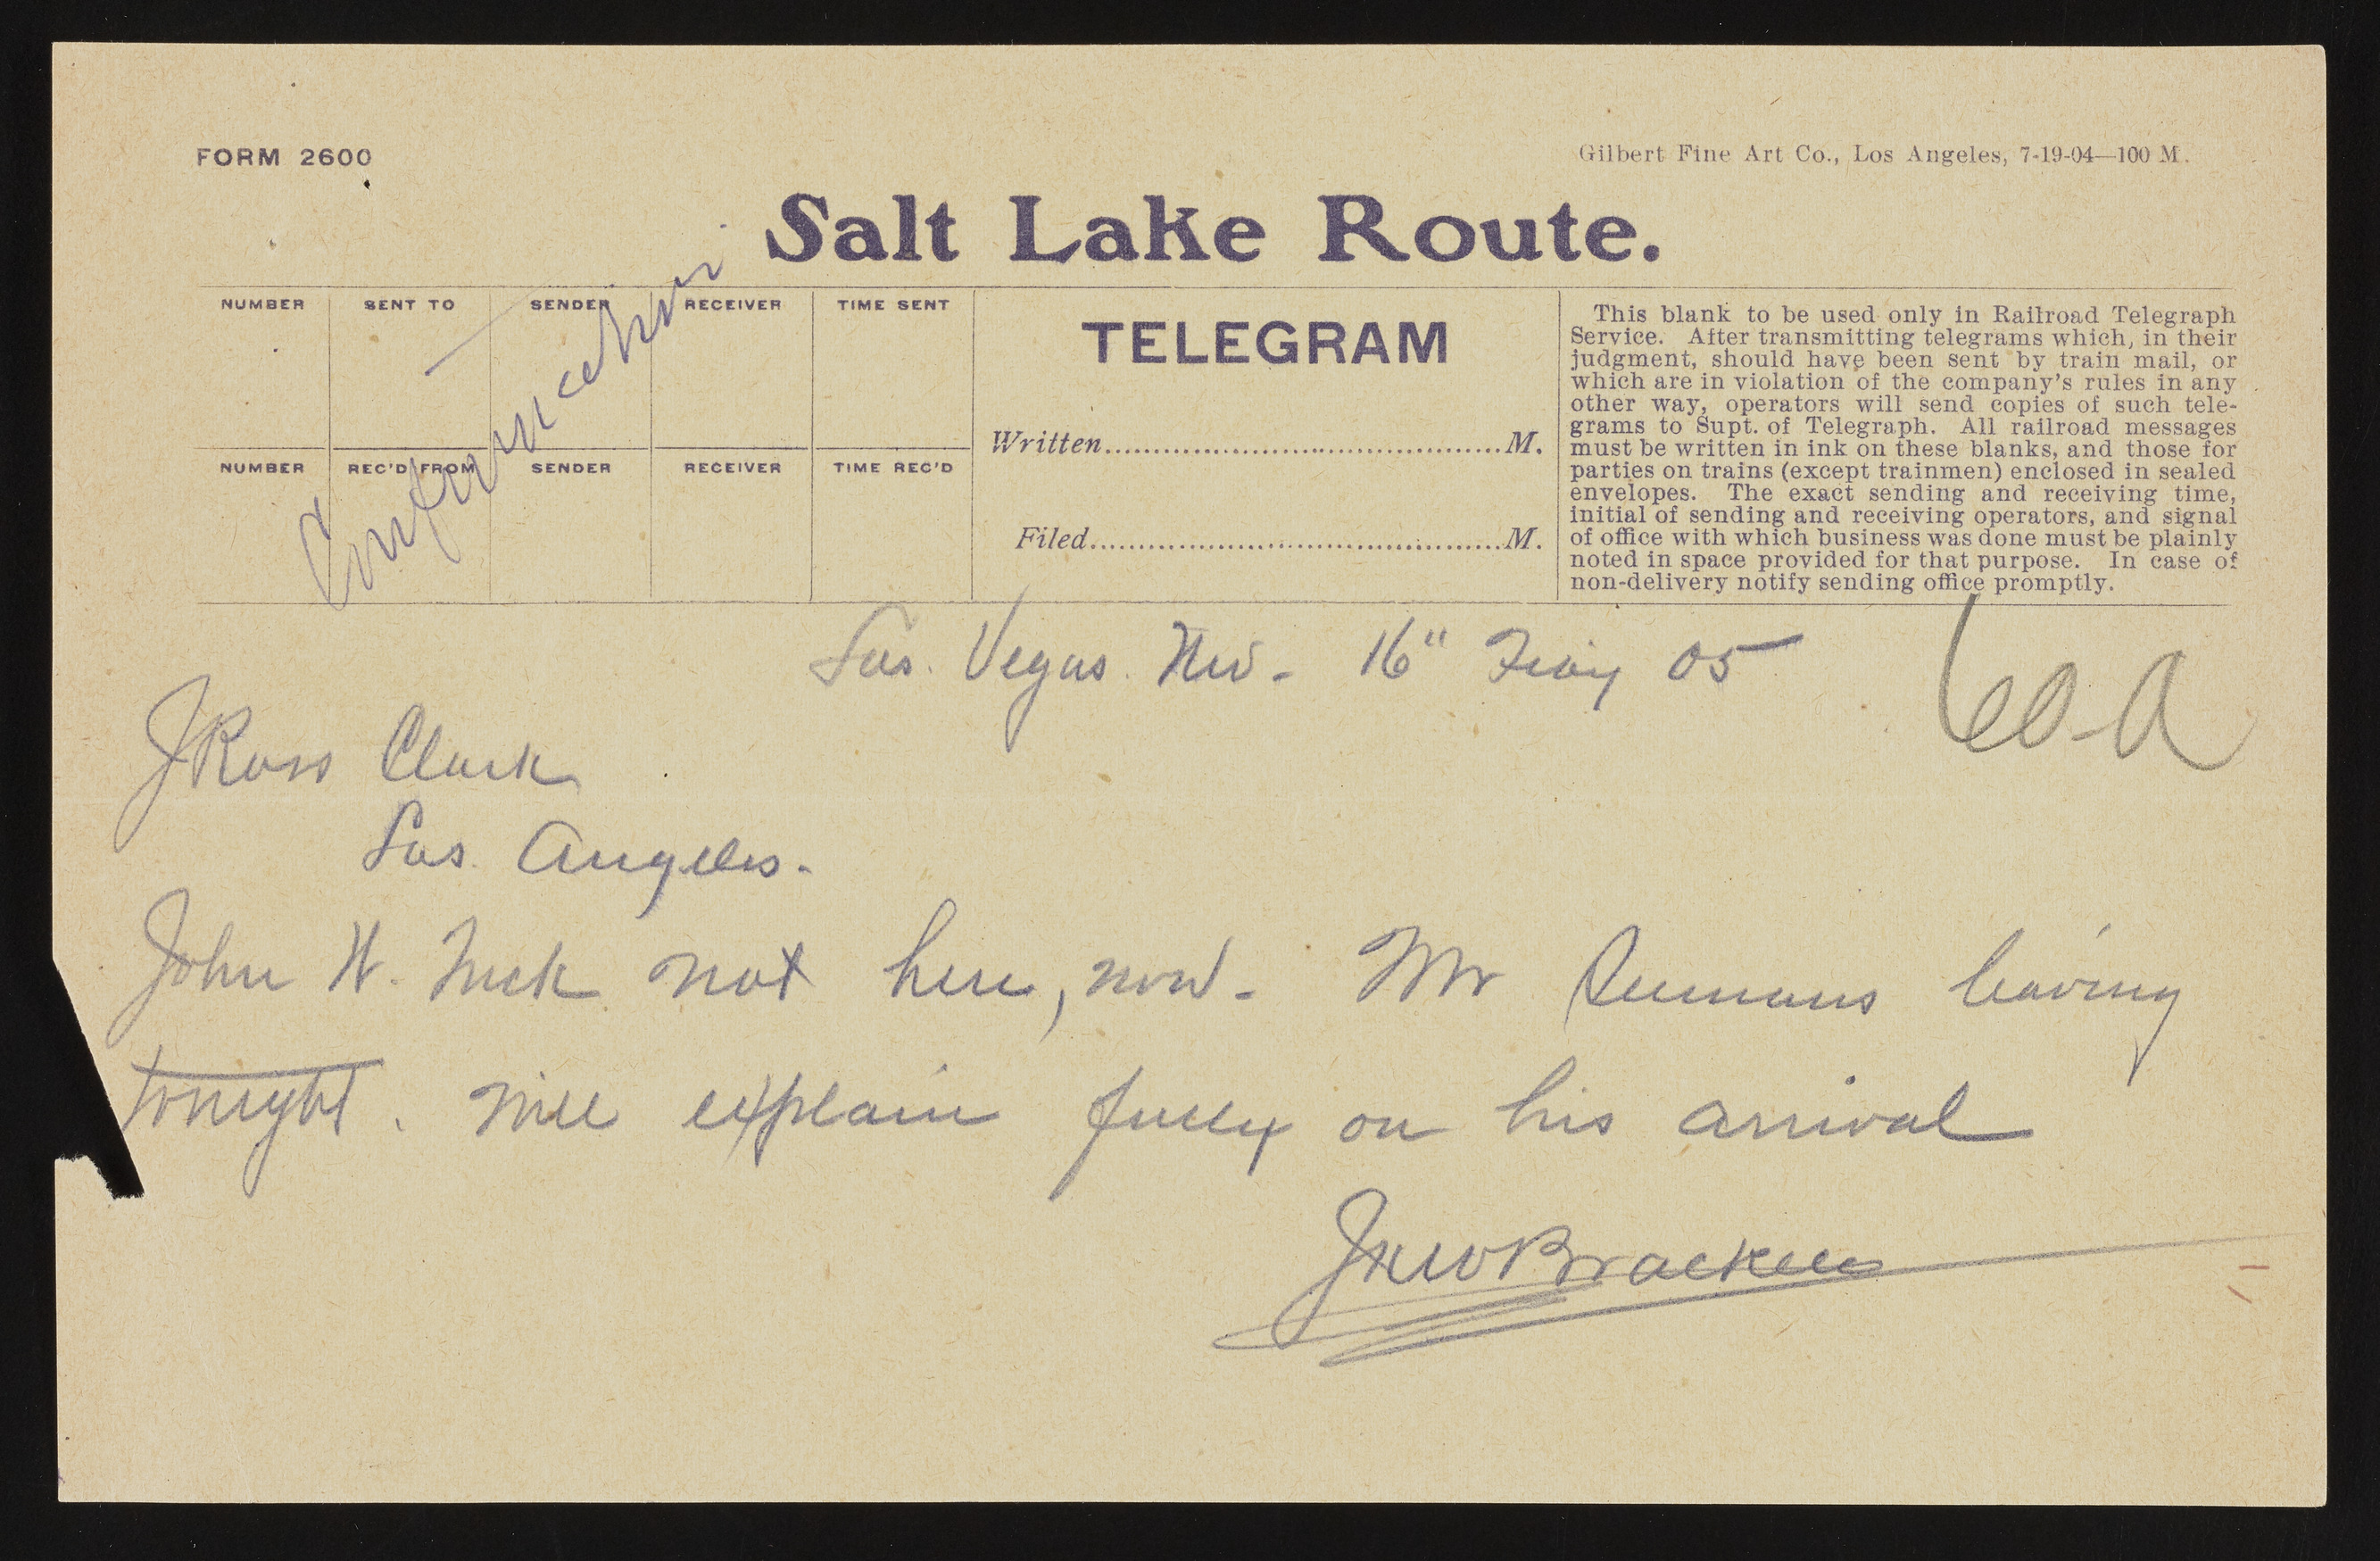 FORM 2600
Gilbert Fine Art Co., Los Angeles, 7-19-04—100 M.
Salt Lake Route.
NUMBER SENT TO SENDER RECEIVER TIME SENT
NUMBER REC'D FROM SENDER RECEIVER TIME REC'D
Confirmation
TELEGRAM
Written M.
Filed M.
This blank to be used only in Railroad Telegraph
Service. After transmitting telegrams which, in their
judgment, should have been sent by train mail, or
which are in violation of the company's rules in any
other way, operators will send copies of such tele-
grams to Supt. of Telegraph. All railroad messages
must be written in ink on these blanks, and those for
parties on trains (except trainmen) enclosed in sealed
envelopes. The exact sending and receiving time,
initial of sending and receiving operators, and signal
of office with which business was done must be plainly
noted in space provided for that purpose. In case of
non-delivery notify sending office promptly.
Las Vegas Nev - 16" 05
J Ross Clark
Los Angeles.
John W. not here, now - Mr leaving
tonight. will explain fully on his arrival
Bracken